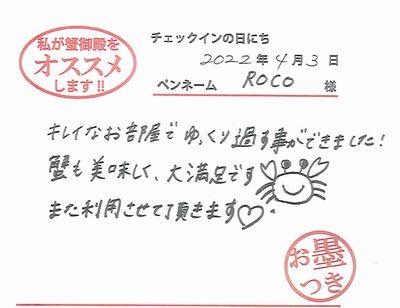 私が蟹御殿を
オススメ
します!!
チェックインの日にち
2022年4月3日
ペンネーム ROCO 様
キレイなお部屋でゆっくり過す事ができました!
蟹も美味しく、大満足です
また利用させて頂きます♡
お墨
つき